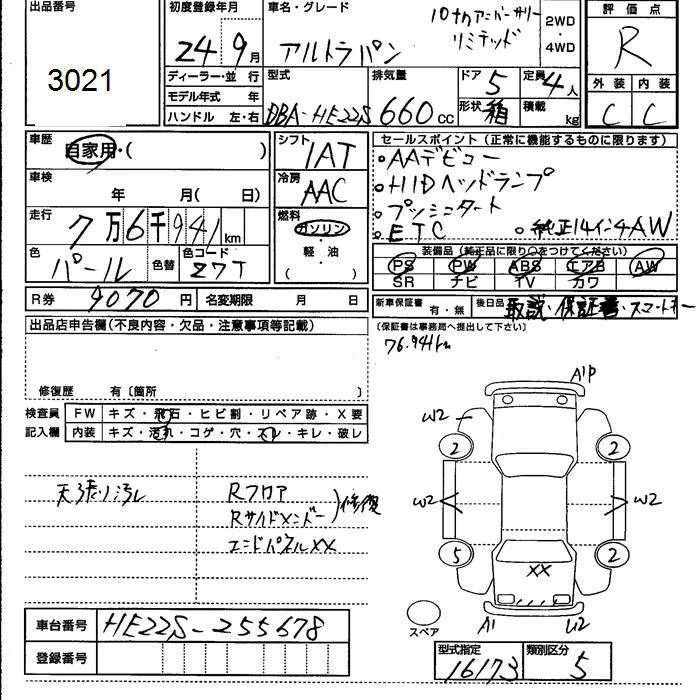 出品番号 初度登録年月 車名・グレード 10thアニバーサリー 2WD 評価点
3021 24 9月 アルトラパン リミテッド ・ 4WD R
ディーラー・並 行 型式 排気量 ドア 5 定員 4人 外装 内装
モデル年式 年 DBA-HE22S 660cc 形状 箱 積載 kg C C
ハンドル 左・右
車歴 シフト セールスポイント(正常に機能するものに限ります)
自家用・( ) IAT ・AAデビュー
車検 冷房 ・HIDヘッドランプ
年 月( 日) AAC ・プッシュスタート
走行 燃料 ・ETC ・純正14インチAW
7万6千941km ガソリン 装備品(純正品に限り○をつけてください)
色 色替 色コード 軽・油 PS PW ABS エアB AW
パール Z7T ( ) SR ナビ TV カワ
R券 9070円 名変期限 月 日 新車保証書 有・無 後日品 取説・保証書・スマートキー
出品店申告欄(不良内容・欠品・注意事項等記載) (保証書は事務局へ提出して下さい)
76.941km
修復歴 有〔箇所 〕
検査員 FW キズ・飛石・ヒビ割・リペア跡・X要
記入欄 内装 キズ・汚れ・コゲ・穴・スレ・キレ・破レ
A1P
W2
2 2
天張り汚れ Rフロア
Rサイドメンバー 修復
エンドパネルXX
W2 W2
5 2
XX
スペア A1 U2
車台番号 HE22S-255678
登録番号
型式指定 類別区分
16173 5